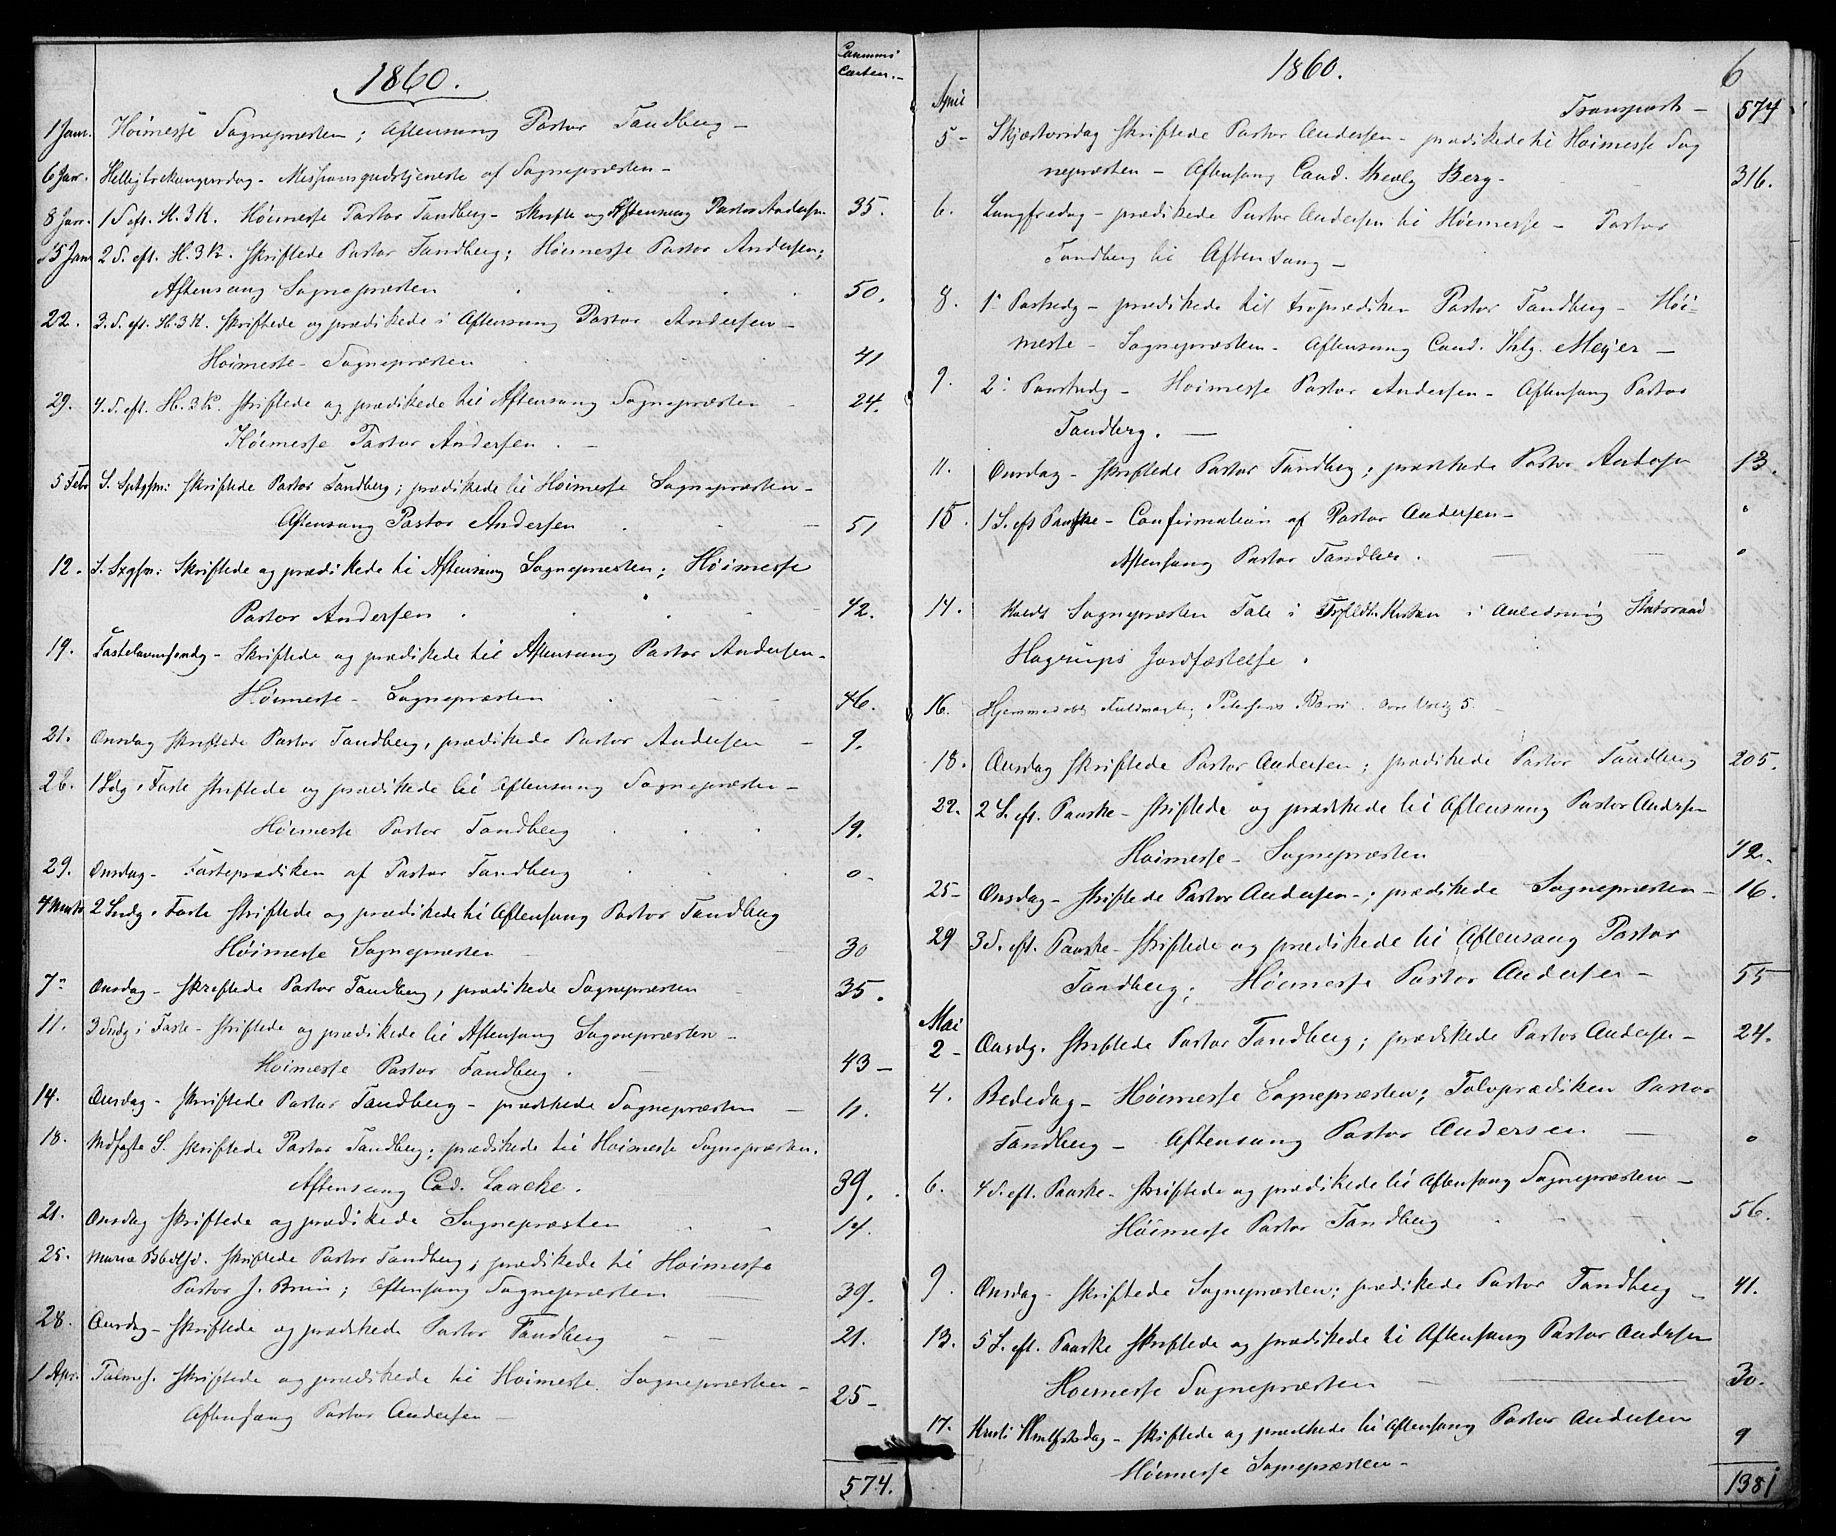 1860.
Communi
canter.
1 Janr. Høimesse Sognepræsten; Aftensang Pastor Tandberg
6 Janr. Helligtrekongersdag - Missionsgudstjeneste af Sognepræsten -
8 Janr. 1 S. eft. H. 3 K. Høimesse Pastor Tandberg - Skrifte og Aftensang Pastor Andersen 35.
15 Janr 2 S. eft. H. 3 K. skriftede Pastor Tandberg; Høimesse Pastor Andersen;
Aftensang Sognepræsten 50.
22. 3. S. eft. H. 3 K. skriftede og prædikede i Aftensang Pastor Andersen -
Høimesse - Sognepræsten 41
29. 4. S. eft. H. 3 K. skriftede og prædikede til Aftensang Sognepræsten - 24.
Høimesse Pastor Andersen. -
5 Febr S. Sptgsm: skriftede Pastor Tandberg; prædikede til Høimesse Sognepræsten -
Aftensang Pastor Andersen 51
12. S. Sxgsm: Skriftede og prædikede ti Aftensang Sognepræsten; Høimesse
Pastor Andersen 42.
19. Fastelavnssondg - Skriftede og prædikede til Aftensang Pastor Andersen -
Høimesse - Sognepræsten 46.
21. Onsdag skriftede Pastor Tandberg, prædikede Pastor Andersen - 9.
26. 1 Sdg i Faste skriftede og prædikede til Aftensang Sognepræsten -
Høimesse Pastor Tandberg 19.
29. Onsdag - Fasteprædiken af Pastor Tandberg 0 -
4 Marts 2 Sndg i Faste skriftede og prædikede ti Aftensang Pastor Tandberg
Høimesse Sognepræsten 30
7 - Onsdag - skriftede Pastor Tandberg, prædikede Sognepræsten 35.
11. 3 Sndg i Faste - skriftede og prædikede til Aftensang Sognepræsten -
Høimesse Pastor Tandberg. 43 -
14. Onsdag - skriftede Pastor Tandberg - prædikede Sognepræsten 11.
18. Midfaste S. skriftede Pastor Tandberg; prædikede til Høimesse Sognepræsten.
Aftensang Cad. Laache. 39.
21. Onsdag skriftede og prædikede Sognepræsten 14.
25. Mariæ skriftede Pastor Tandberg; prædikede til Høimesse
Pastor J. Brun; Aftensang Sognepræsten 39.
28. Onsdag - skriftede og prædikede Pastor Tandberg - - 21.
1 Apr. Palmes. skriftede og prædikede til Høimesse. Sognepræsten - 25 -
Aftensang Pastor Andersen -
574.
1860. 6
April Transport - 574
5 - Skjærtorsdag skriftede Pastor Andersen - prædikede ti Høimesse Sog
nepræsten - Aftensang Cand. theolg Berg - 316.
6. Langfredag - prædikede Pastor Andersen ti Høimesse - Pastor
Tandberg ti Aftensang -
8. 1. Paaskedg - prædikede til Froprædiken Pastor Tandberg - Høi-
messe - Sognepræsten - Aftensang Cand. thlg. Meyer -
9. 2. Paaskedg - Høimesse Pastor Andersen - Aftensang Pastor
Tandberg. -
11. Onsdag - skriftede Pastor Tandberg; prædikede Pastor Andersen 13.
15. 1 S. eft Paaske - Confirmation af Pastor Andersen - 0
Aftensang Pastor Tandberg. 0
14. Holdt Sognepræsten Tale i Kirken i Anledning Statsraad
Hagerups Jordfæstelse.
16. Hjemmedøbt Fuldmægtig Petersens Barn
18. Onsdag skriftede Pastor Andersen; prædikede Pastor Tandberg 205.
22. 2 S. eft. Paaske - skriftede og prædikede til Aftensang Pastor Andersen
Høimesse - Sognepræsten 42.
25 - Onsdag - skriftede Pastor Andersen -; prædikede Sognepræsten - 16.
29 3 S. eft. Paaske - skriftede og prædikede ti Aftensang Pastor
Tandberg; Høimesse Pastor Andersen - 55
Mai
2 - Onsdg. skriftede Pastor Tandberg; prædikede Pastor Andersen - 24.
4. Bededag - Høimesse Sognepræsten; Tolvprædiken Pastor
Tandberg - Aftensang Pastor Andersen 0
6. 4 S. eft. Paaske - skriftede og prædikede ti Aftensang Sognepræsten -
Høimesse Pastor Tandberg 56.
9. Onsdag - skriftede Sognepræsten; prædikede Pastor Tandberg - 41.
13. 5 S. eft. Paaske skriftede og prædikede ti Aftensang Pastor Andersen
Høimesse Sognepræsten 30.
17. Kristi Himlfrtsdag - skriftede og prædikede til Aftensang Pastor Andersen 9
Høimesse Sognepræsten -
1381